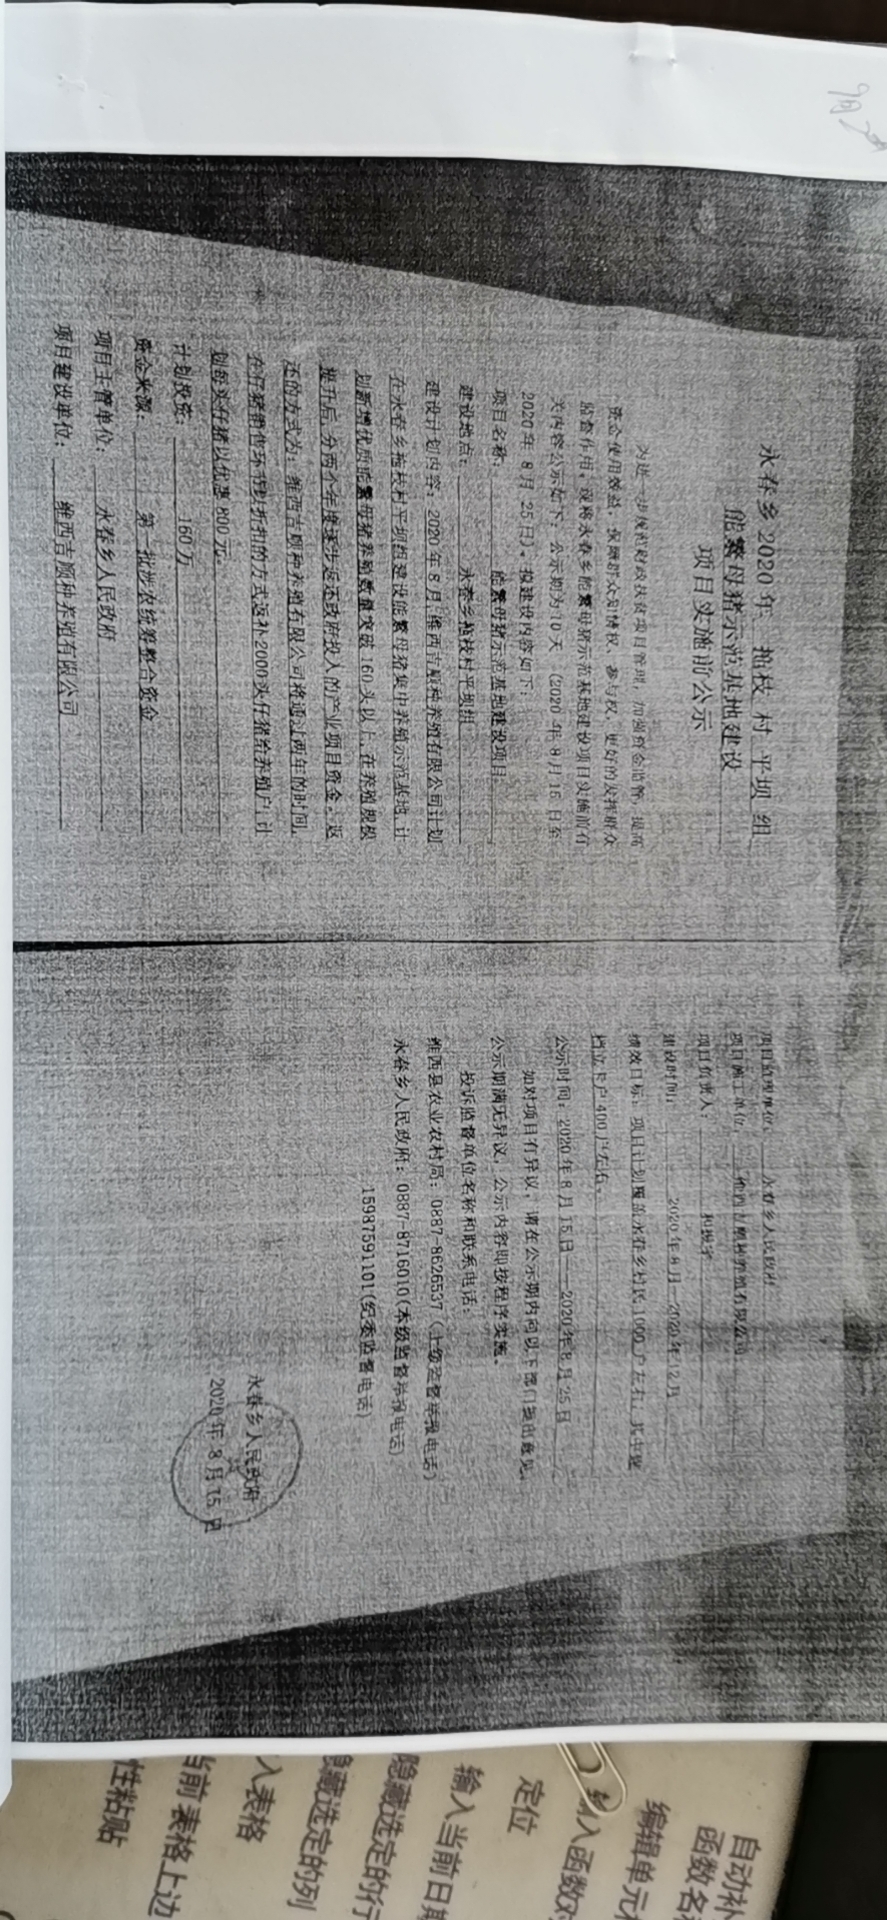 永春乡 2020 年 拖枝 村 平坝 组
能繁母猪示范基地建设
项目实施前公示
为进一步规范财政扶贫项目管理，加强资金监管，提高
资金使用效益，保障群众知情权、参与权，更好的发挥群众
监督作用，现将永春乡能繁母猪示范基地建设项目实施前有
关内容公示如下，公示期为10天（2020年8月15日至
2020年8月25日）。拟建设内容如下：
项目名称： 能繁母猪示范基地建设项目
建设地点： 永春乡拖枝村平坝组
建设计划内容：2020年8月，维西吉顺种养殖有限公司计划
在永春乡拖枝村平坝组建设能繁母猪集中养殖示范基地，计
划新增优质能繁母猪养殖数量突破160头以上，在养殖规模
提升后，分两个年度逐步返还政府投入的产业项目资金。返
还的方式为：维西吉顺种养殖有限公司将通过两年的时间，
在仔猪销售环节以折扣的方式返补2000头仔猪给养殖户，计
划每头仔猪以优惠800元。
计划投资： 160万
资金来源： 第一批涉农统筹整合资金
项目主管单位： 永春乡人民政府
项目建设单位： 维西吉顺种养殖有限公司
项目监理单位： 永春乡人民政府
项目施工单位： 维西吉顺种养殖有限公司
项目负责人：
建设时间： 2020年8月—2020年12月
绩效目标：项目计划覆盖永春乡村民1000户左右，其中建
档立卡户400户左右。
公示时间：2020年8月15日——2020年8月25日
如对项目有异议，请在公示期内向以下部门提出意见，
公示期满无异议，公示内容即按程序实施。
投诉监督单位名称和联系电话：
维西县农业农村局：0887-8626537（上级监督举报电话）
永春乡人民政府：0887-8716010(本级监督举报电话)
15987591101(纪委监督电话)
永春乡人民政府
2020年8月15日
自动补
函数名
编辑单元
输入函数对
定位
输入当前日期
隐藏选定的行
隐藏选定的列
入表格
当前表格上边
性粘贴